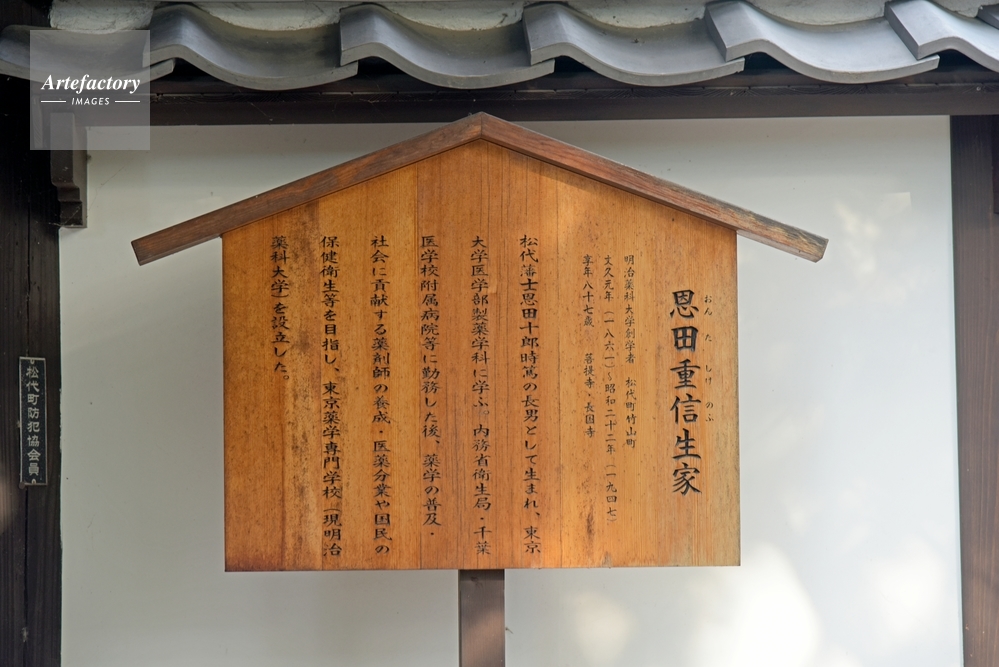 Artefactory
IMAGES
恩田重信生家
おん た しげ のぶ
明治薬科大学創学者 松代町竹山町
文久元年(一八六一)~昭和二十二年(一九四七)
享年八十七歳 菩提寺・長国寺
松代藩士恩田十郎時篤の長男として生まれ、東京
大学医学部製薬学科に学ぶ。内務省衛生局・千葉
医学校附属病院等に勤務した後、薬学の普及・
社会に貢献する薬剤師の養成・医薬分業や国民の
保健衛生等を目指し、東京薬学専門学校(現明治
薬科大学)を設立した。
松代町防犯協会員